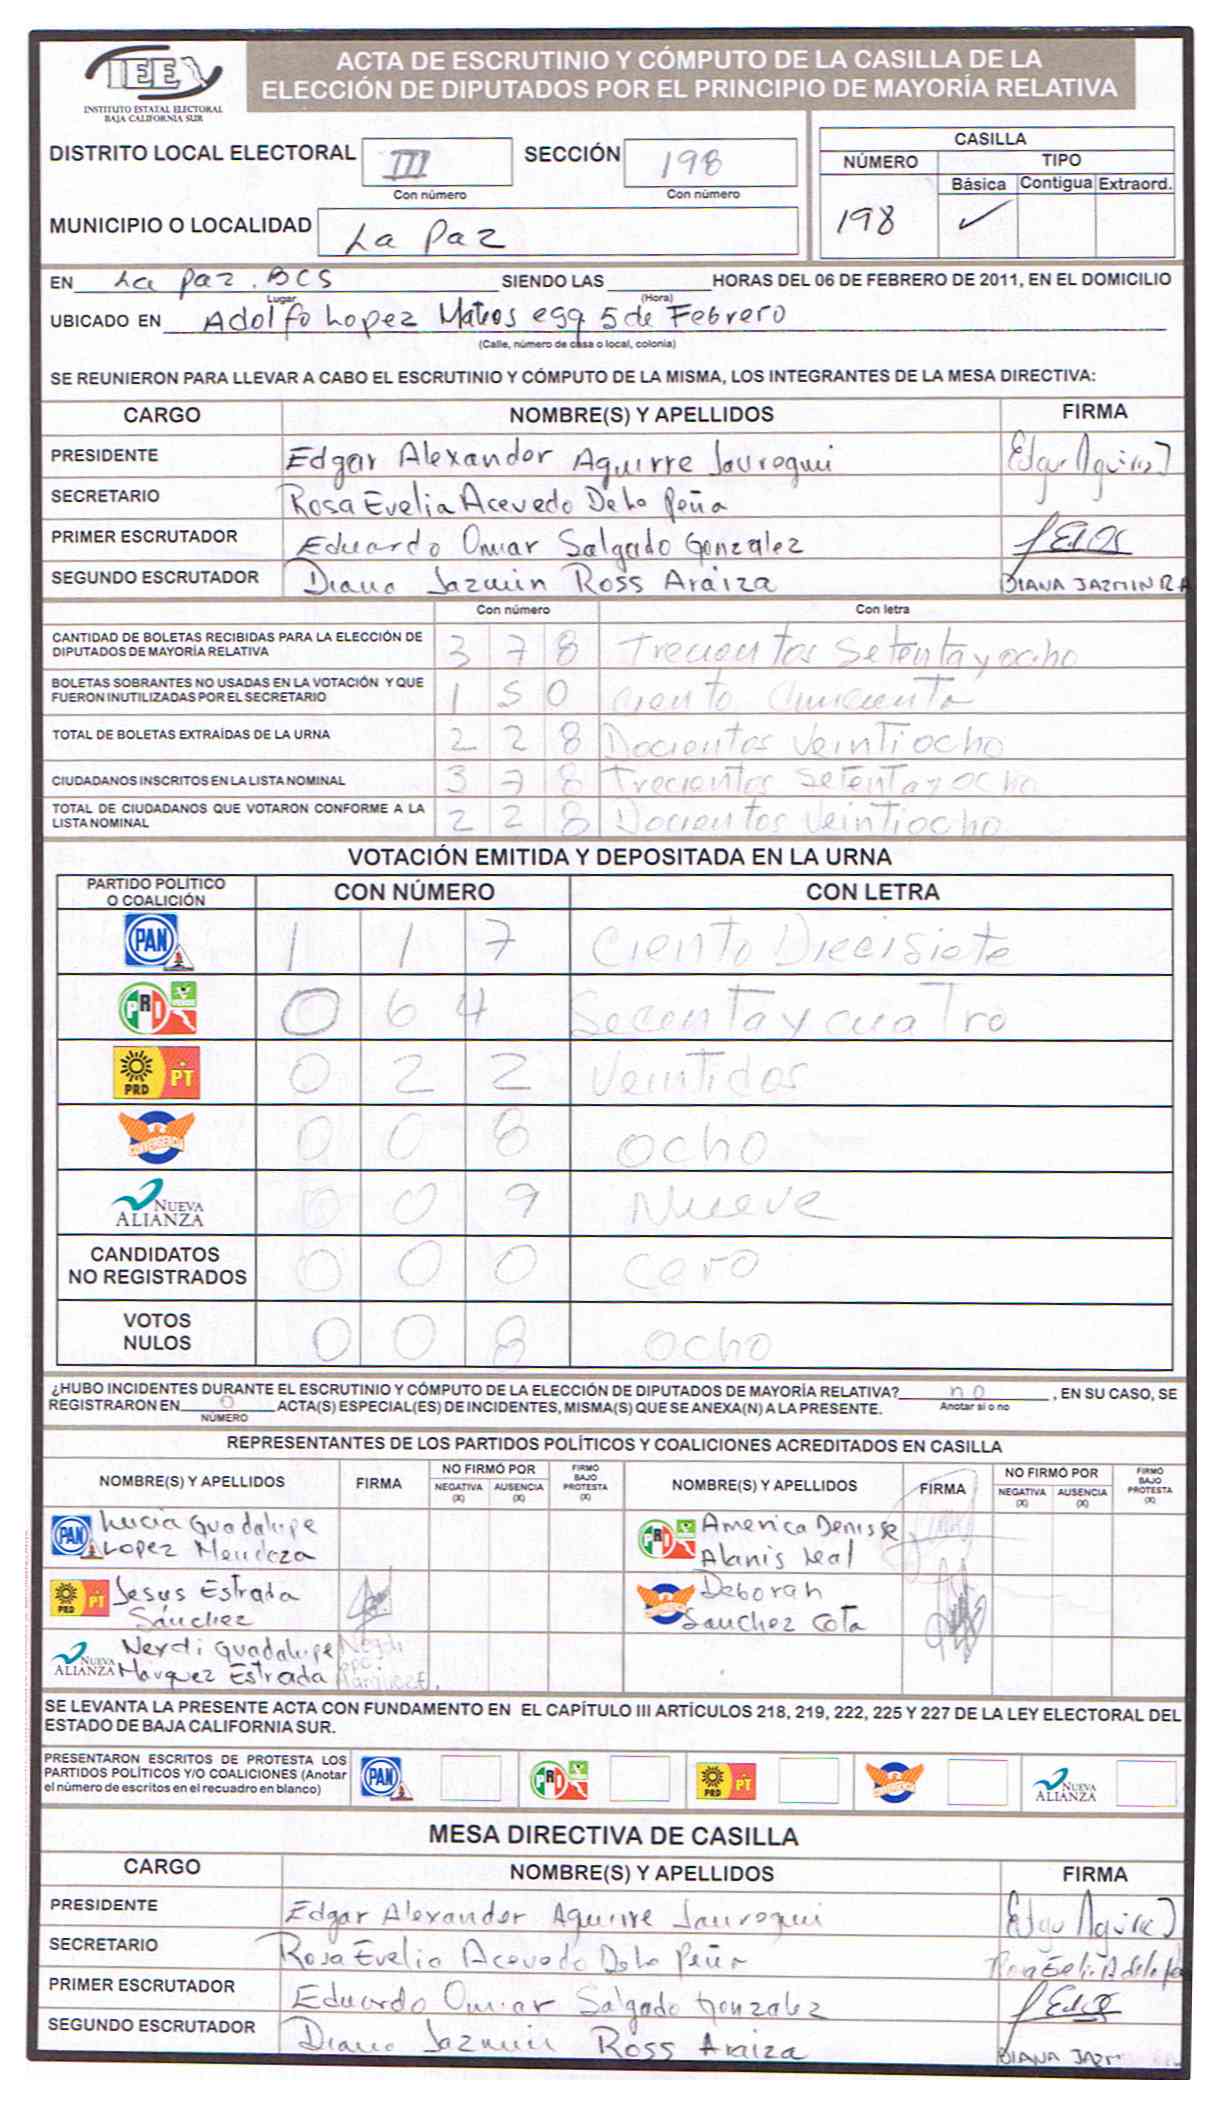 IEE
INSTITUTO ESTATAL ELECTORAL
BAJA CALIFORNIA SUR
ACTA DE ESCRUTINIO Y CÓMPUTO DE LA CASILLA DE LA
ELECCIÓN DE DIPUTADOS POR EL PRINCIPIO DE MAYORÍA RELATIVA
DISTRITO LOCAL ELECTORAL III SECCIÓN 198
Con número Con número
MUNICIPIO O LOCALIDAD La Paz
CASILLA
NÚMERO TIPO
Básica Contigua Extraord.
198 ✓
EN La paz. BCS SIENDO LAS HORAS DEL 06 DE FEBRERO DE 2011, EN EL DOMICILIO
Lugar (Hora)
UBICADO EN Adolfo Lopez Mateos esq 5 de Febrero
(Calle, número de casa o local, colonia)
SE REUNIERON PARA LLEVAR A CABO EL ESCRUTINIO Y CÓMPUTO DE LA MISMA, LOS INTEGRANTES DE LA MESA DIRECTIVA:
CARGO NOMBRE(S) Y APELLIDOS FIRMA
PRESIDENTE Edgar Alexander Aguirre Jauregui
SECRETARIO Rosa Evelia Acevedo De La Peña
PRIMER ESCRUTADOR Eduardo Omar Salgado Gonzalez
SEGUNDO ESCRUTADOR Diana Jazmin Ross Araiza DIANA JAZMIN R A
Con número Con letra
CANTIDAD DE BOLETAS RECIBIDAS PARA LA ELECCIÓN DE
DIPUTADOS DE MAYORÍA RELATIVA 3 7 8 Trecientos Setenta y ocho
BOLETAS SOBRANTES NO USADAS EN LA VOTACIÓN Y QUE
FUERON INUTILIZADAS POR EL SECRETARIO 1 5 0 Ciento Cincuenta
TOTAL DE BOLETAS EXTRAÍDAS DE LA URNA 2 2 8 Docientos Veintiocho
CIUDADANOS INSCRITOS EN LA LISTA NOMINAL 3 7 8 Trecientos Setenta y ocho
TOTAL DE CIUDADANOS QUE VOTARON CONFORME A LA
LISTA NOMINAL 2 2 8 Docientos Veintiocho
VOTACIÓN EMITIDA Y DEPOSITADA EN LA URNA
PARTIDO POLÍTICO
O COALICIÓN CON NÚMERO CON LETRA
PAN 1 1 7 Ciento Diecisiete
PRI VERDE 0 6 4 Secenta y cuatro
PRD PT 0 2 2 Veintidos
CONVERGENCIA 0 0 8 ocho
NUEVA ALIANZA 0 0 9 Nueve
CANDIDATOS
NO REGISTRADOS 0 0 0 cero
VOTOS
NULOS 0 0 8 ocho
¿HUBO INCIDENTES DURANTE EL ESCRUTINIO Y CÓMPUTO DE LA ELECCIÓN DE DIPUTADOS DE MAYORÍA RELATIVA? no , EN SU CASO, SE
Anotar si o no
REGISTRARON EN 0 ACTA(S) ESPECIAL(ES) DE INCIDENTES, MISMA(S) QUE SE ANEXA(N) A LA PRESENTE.
NÚMERO
REPRESENTANTES DE LOS PARTIDOS POLÍTICOS Y COALICIONES ACREDITADOS EN CASILLA
NOMBRE(S) Y APELLIDOS FIRMA NO FIRMÓ POR NEGATIVA (X) AUSENCIA (X) FIRMÓ BAJO PROTESTA (X) NOMBRE(S) Y APELLIDOS FIRMA NO FIRMÓ POR NEGATIVA (X) AUSENCIA (X) FIRMÓ BAJO PROTESTA (X)
PAN Lucia Guadalupe
Lopez Mendoza
PRI America Denisse
Alanis Leal
PRD PT Jesus Estrada
Sánchez
Deborah
Sanchez Cota
NUEVA ALIANZA Nerdi Guadalupe
Marquez Estrada
SE LEVANTA LA PRESENTE ACTA CON FUNDAMENTO EN EL CAPÍTULO III ARTÍCULOS 218, 219, 222, 225 Y 227 DE LA LEY ELECTORAL DEL
ESTADO DE BAJA CALIFORNIA SUR.
PRESENTARON ESCRITOS DE PROTESTA LOS
PARTIDOS POLÍTICOS Y/O COALICIONES (Anotar
el número de escritos en el recuadro en blanco)
PAN PRI PRD PT CONVERGENCIA NUEVA ALIANZA
MESA DIRECTIVA DE CASILLA
CARGO NOMBRE(S) Y APELLIDOS FIRMA
PRESIDENTE Edgar Alexander Aguirre Jauregui
SECRETARIO Rosa Evelia Acevedo De La Peña
PRIMER ESCRUTADOR Eduardo Omar Salgado Gonzalez
SEGUNDO ESCRUTADOR Diana Jazmin Ross Araiza DIANA